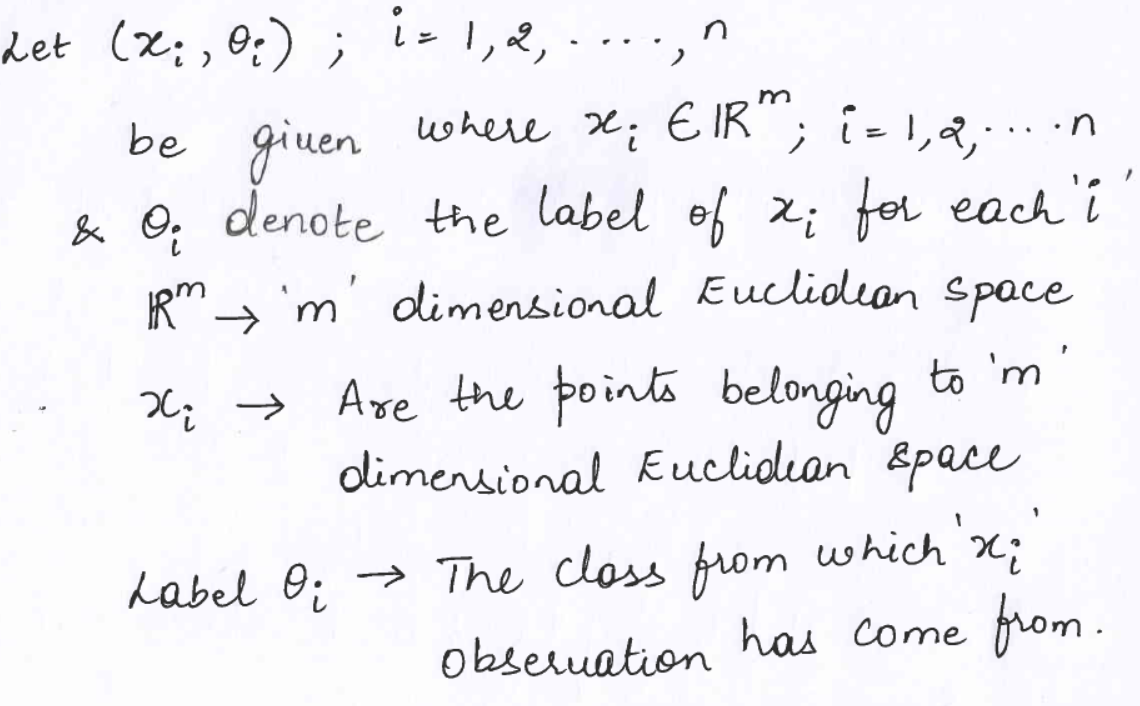 Let (xᵢ, θᵢ) ; i = 1, 2, ....., n
be given where xᵢ ∈ ℝᵐ ; i = 1, 2, .... n
& θᵢ denote the label of xᵢ for each 'i'
ℝᵐ → 'm' dimensional Euclidean space
xᵢ → Are the points belonging to 'm'
dimensional Euclidean space
Label θᵢ → The class from which 'xᵢ'
observation has come from.